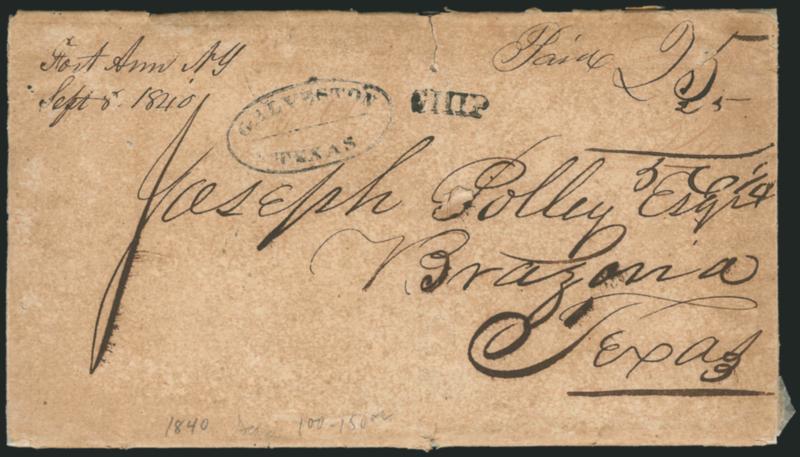 Fort Ann NY
Sept 8. 1840
Paid 25
GALVESTON
TEXAS
SHIP
Joseph Polley Esqr
Brazoria
Texas
1840 100-150